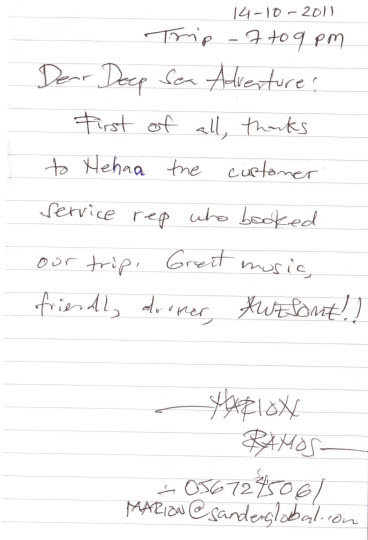 14-10-2011
Trip - 7 to 9 pm
Dear Deep Sea Adventure!
First of all, thanks
to Nehaa the customer
service rep who booked
our trip. Great music,
friendly driver, AWESOME!!
MARION
RAMOS
MARION@sanderglobal.com